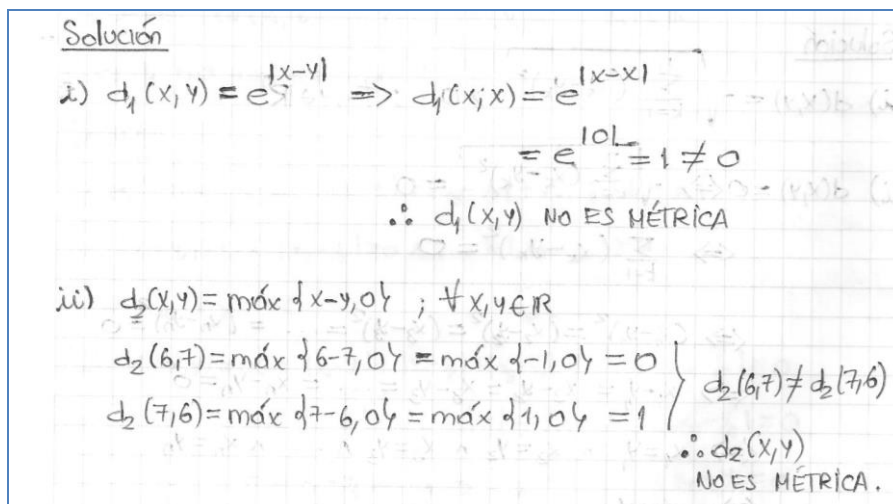 Solución
i) d₁(x,y) = e^|x-y| => d₁(x;x) = e^|x-x|
= e^|0| = 1 ≠ 0
∴ d₁(x,y) NO ES MÉTRICA
ii) d₂(x,y) = máx {x-y,0} ; ∀ x,y ∈ ℝ
d₂(6,7) = máx {6-7,0} = máx {-1,0} = 0
d₂(7,6) = máx {7-6,0} = máx {1,0} = 1
} d₂(6,7) ≠ d₂(7,6)
∴ d₂(x,y)
NO ES MÉTRICA.